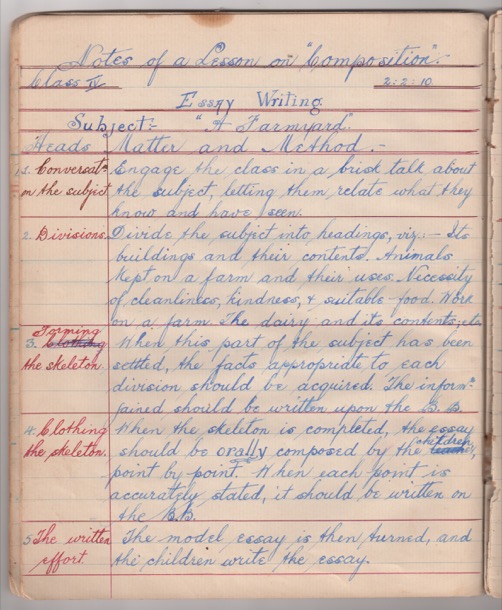 Notes of a Lesson on "Composition".
Class IV
2:2:10
Essay Writing
Subject:- "A Farmyard".
Heads Matter and Method.-
1. Conversatn Engage the class in a brisk talk about
on the subject the subject, letting them relate what they
know and have seen.
2. Divisions. Divide the subject into headings, viz:- Its
buildings and their contents. Animals
kept on a farm and their uses. Necessity
of cleanliness, kindness, & suitable food. Work
on a farm. The dairy and its contents, etc.
Forming
3. Clothing When this part of the subject has been
the skeleton. settled, the facts appropriate to each
division should be acquired. The inform.n
gained should be written upon the B. B.
4. Clothing When the skeleton is completed, the essay
the skeleton. should be orally composed by the children,
point by point. When each point is
accurately stated, it should be written on
the B.B.
5 The written The model essay is then turned, and
effort. the children write the essay.